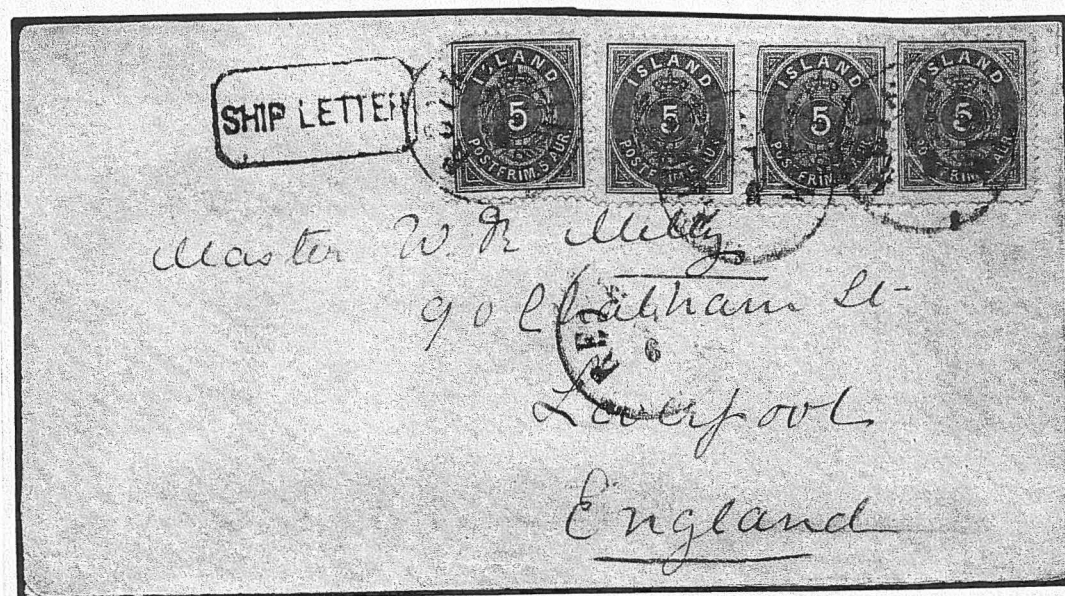 SHIP LETTER
ISLAND 5 POSTFRIM. 5 AUR
ISLAND 5 POSTFRIM. 5 AUR
ISLAND 5 POSTFRIM. 5 AUR
ISLAND 5 POSTFRIM. 5 AUR
Master W. R
90 Chatham St
6
Liverpool
England